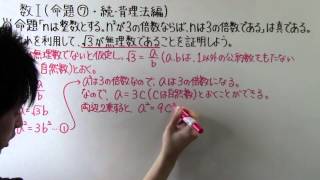 数Ⅰ(命題⑦・続・背理法編)
※命題「nは整数とする。n²が3の倍数ならば、nは3の倍数である」は真である。
れを利用して、√3が無理数であることを証明しよう。
無理数でないと仮定し、√3=a/b (a.bは、1以外の公約数をもたない
自然数)とおく。
a=√3b
a²=3b²…①
aは3の倍数なので、aは3の倍数になる。
なので、a=3C(Cは自然数)とおくことができる。
両辺2乗すると a²=9C